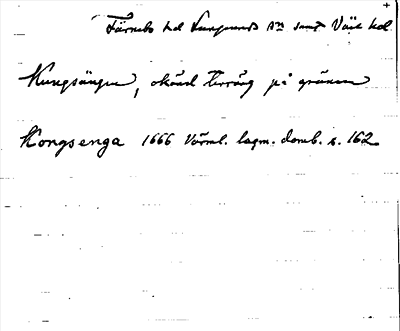 Färnebo hd Lungsunds sn samt Väse hd.
Kungsängen, okänd terräng på gränsen
Kongsenga 1666 Värml. lagm. domb. s. 162